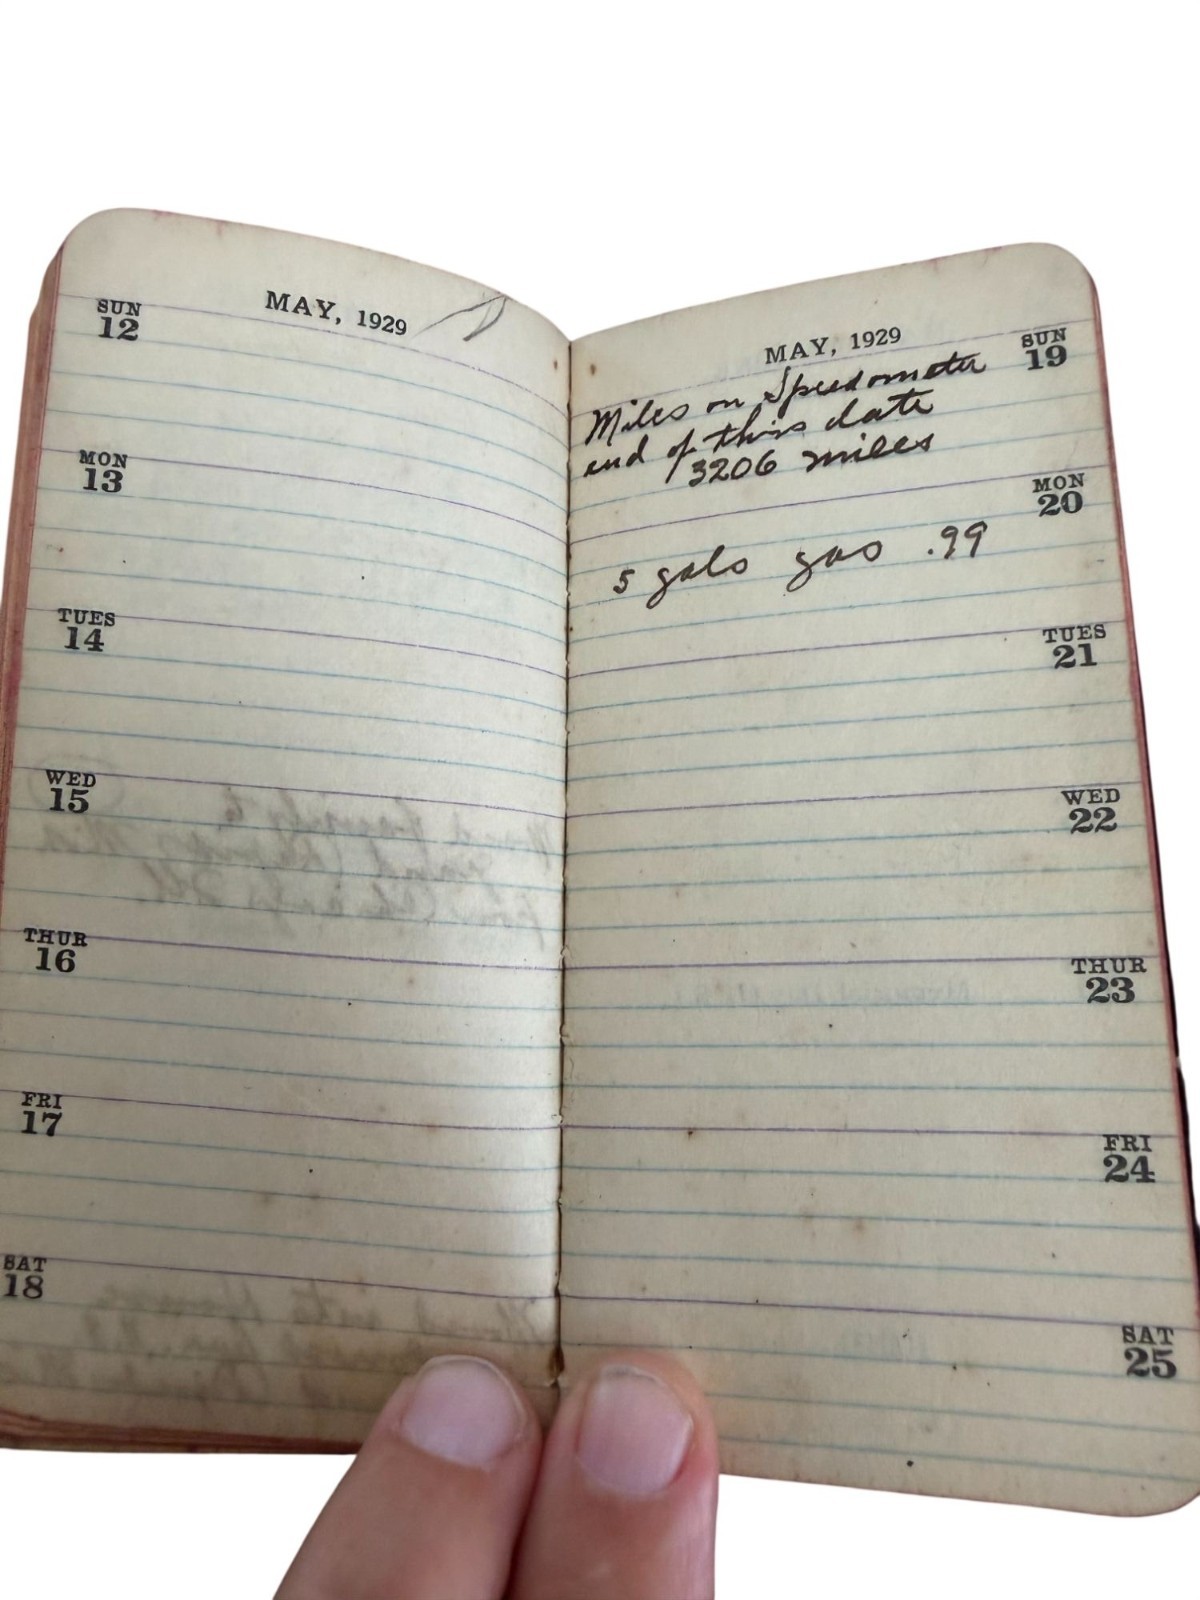 MAY, 1929
SUN
12
MON
13
TUES
14
WED
15
THUR
16
FRI
17
SAT
18
MAY, 1929
SUN
19
Miles on Speedometer
end of this date
3206 miles
MON
20
5 gals gas .99
TUES
21
WED
22
THUR
23
FRI
24
SAT
25